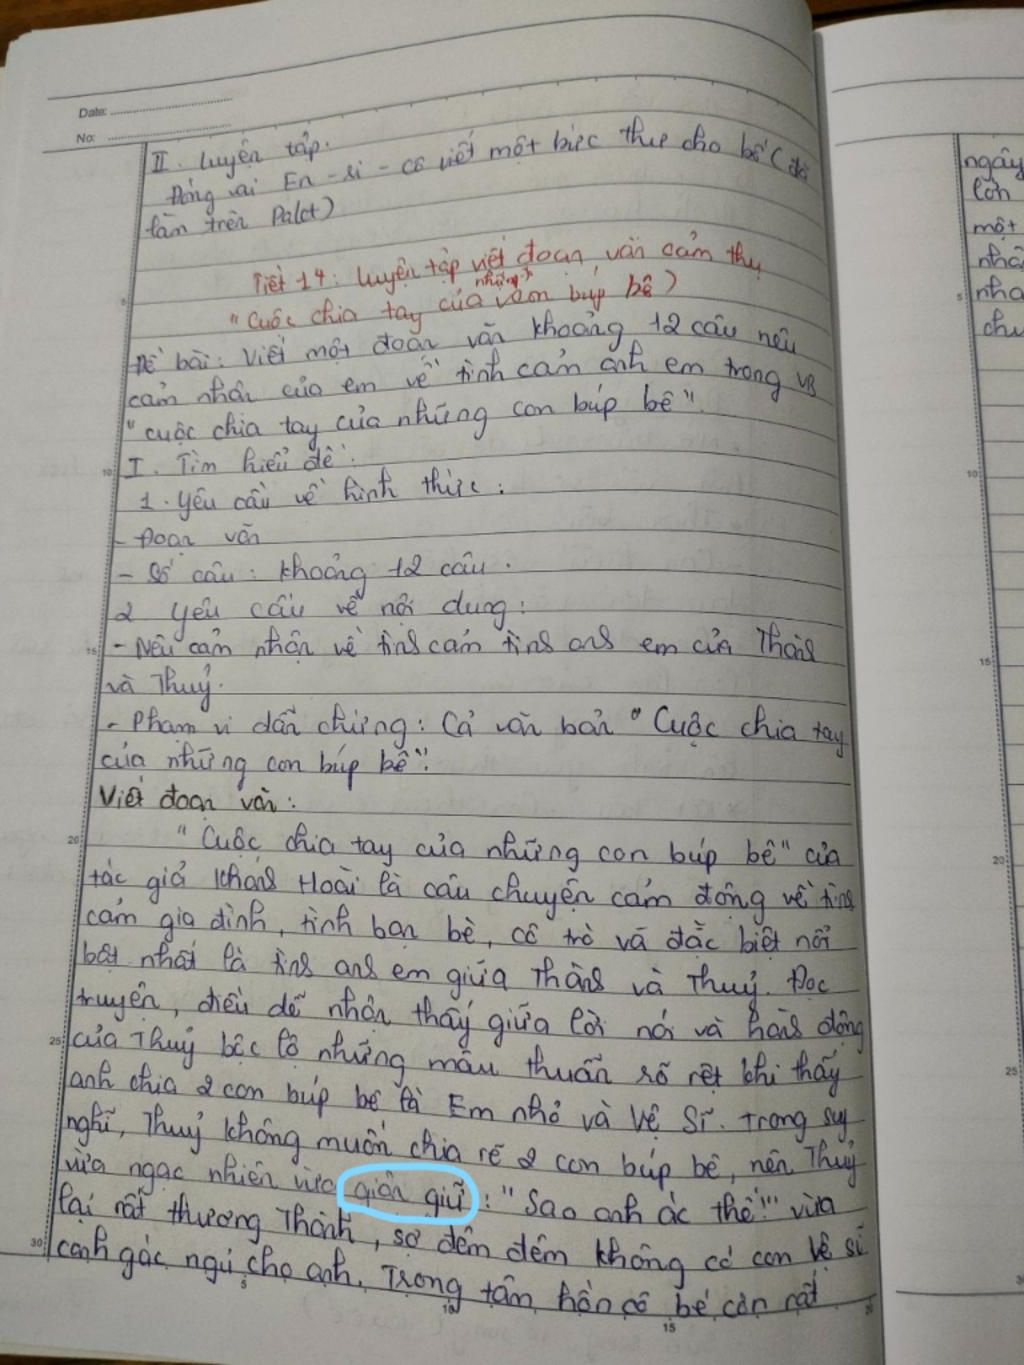 Date:
No:
II. Luyện tập.
Đóng vai En-ri-cô viết một bức thư cho bố (đã
làm trên Palet)
Tiết 14: Luyện tập viết đoạn văn cảm thụ
những
"Cuộc chia tay của con búp bê)
Đề bài: Viết một đoạn văn khoảng 12 câu nêu
cảm nhận của em về tình cảm anh em trong VB
"Cuộc chia tay của những con búp bê".
I. Tìm hiểu đề:
1. Yêu cầu về hình thức:
- Đoạn văn
- Số câu: khoảng 12 câu.
2 Yêu cầu về nội dung:
- Nêu cảm nhận về tình cảm tình anh em của Thành
và Thuỷ.
- Phạm vi dẫn chứng: Cả văn bản "Cuộc chia tay
của những con búp bê".
Viết đoạn văn:
"Cuộc chia tay của những con búp bê" của
tác giả Khánh Hoài là câu chuyện cảm động về tình
cảm gia đình, tình bạn bè, cô trò và đặc biệt nổi
bật nhất là tình anh em giữa Thành và Thuỷ. Đọc
truyện, điều dễ nhận thấy giữa lời nói và hành động
của Thuỷ bộc lộ những mâu thuẫn rõ rệt khi thấy
anh chia 2 con búp bê là Em nhỏ và Vệ Sĩ. Trong suy
nghĩ, Thuỷ không muốn chia rẽ 2 con búp bê, nên Thuỷ
vừa ngạc nhiên vừa giận giữ: "Sao anh ác thế!" vừa
lại rất thương Thành, sợ đêm đêm không có con Vệ sĩ
canh gác ngủ cho anh. Trong tâm hồn cô bé còn rất
ngây
lớn
một
nhâ
nha
chu
5
10
15
20
25
30
5
10
15
20
5
10
15
20
25